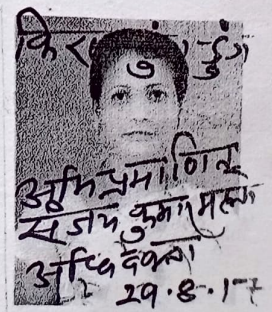 अभिप्रमाणित
संजय कुमार मल्ल
अधिवक्ता
29.8.17